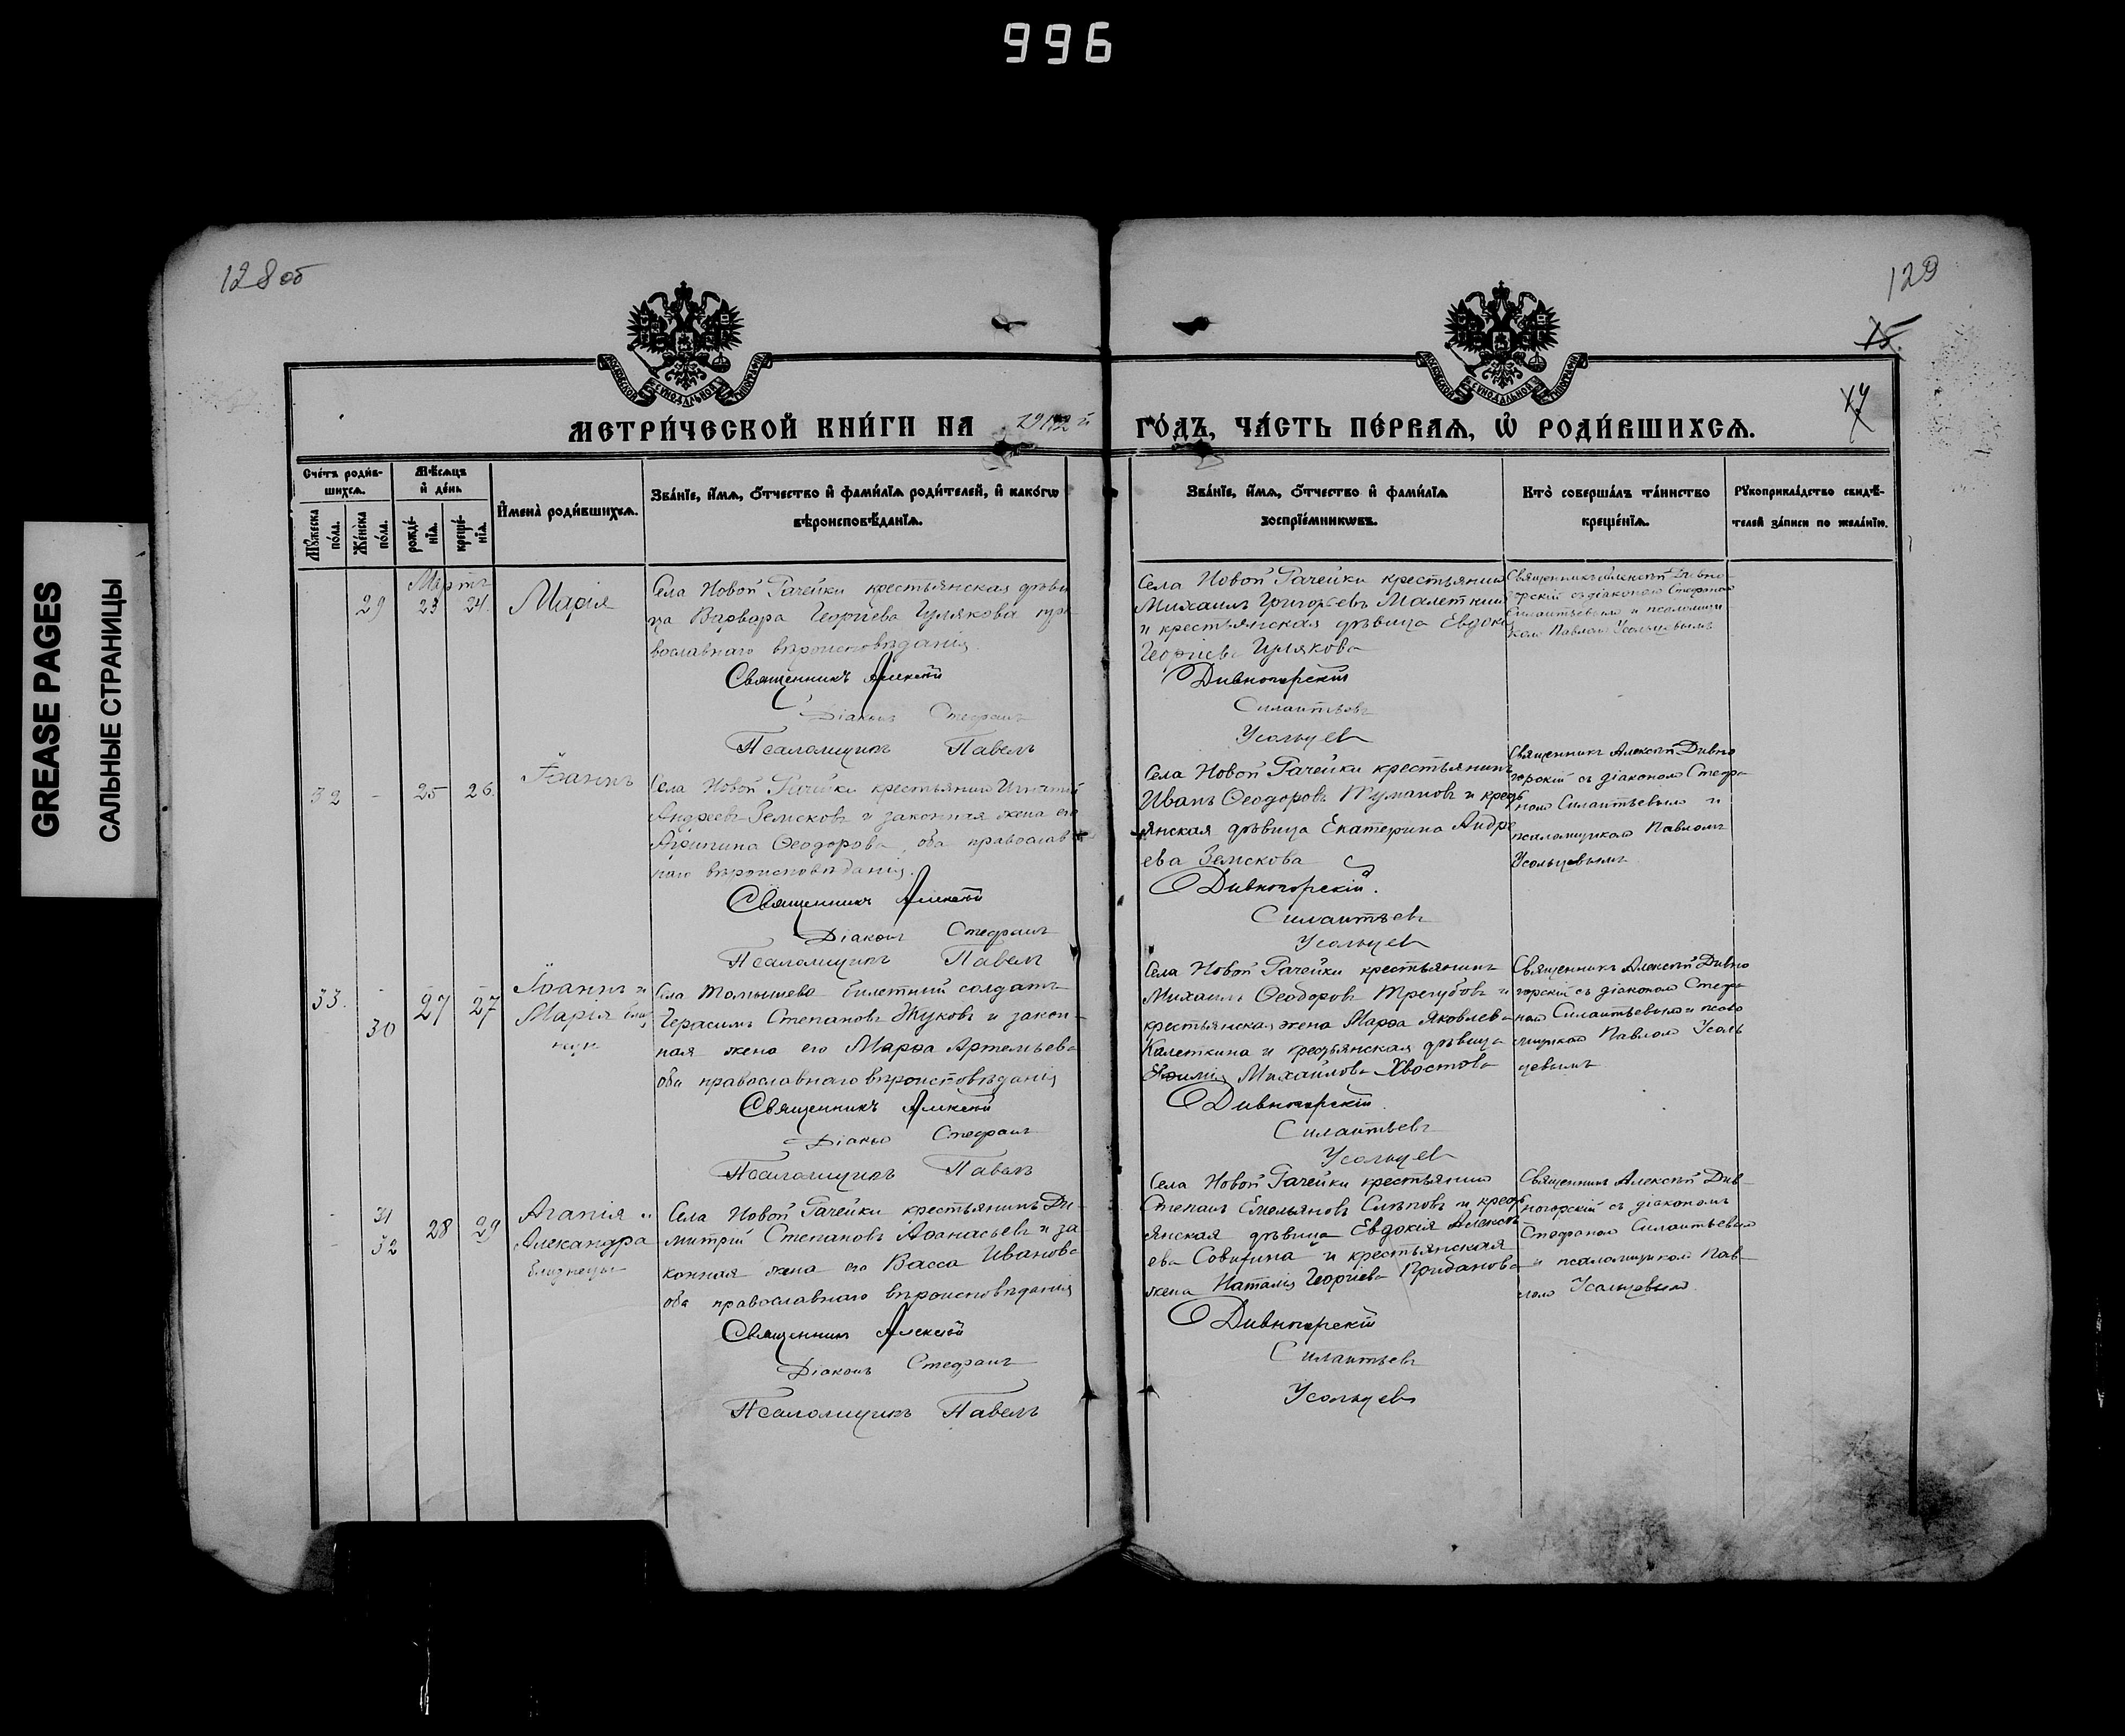 996
GREASE PAGES
САЛЬНЫЕ СТРАНИЦЫ
128 об
129
15.
МЕТРИ́ЧЕСКОЙ КНИ́ГИ НА 1912 й ГО́ДЪ, ЧА́СТЬ ПЕ́РВАѦ, Ѽ РОДИ́ВШИХСѦ.
Сче́тъ роди́в-
шихсѧ.
Мѣ́сѧцъ
и҆ де́нь
Мꙋ́жеска по́ла.
Же́нска по́ла.
рожде́-
нїѧ.
креще́-
нїѧ.
И҆мена̀ роди́вшихсѧ.
Зва́нїе, и҆́мѧ, ѻ҆́тчество и҆ фами́лїѧ роди́телей, и҆ како́гѡ
вѣроисповѣ́данїѧ.
Зва́нїе, и҆́мѧ, ѻ҆́тчество и҆ фами́лїѧ
воспрїе́мникѡвъ.
Кто̀ соверша́лъ та́инство
креще́нїѧ.
Рꙋкоприкла́дство свидѣ́-
телей за́писи по жела́нїю.
Мартъ
29 23 24.
Марія
Села Новой Рачейки крестьянская дѣви
ца Варвара Георгіева Гулякова пра
вославнаго вѣроисповѣданія.
Священникъ Алексѣй
Діаконъ Стефанъ
Псаломщикъ Павелъ
Села Новой Рачейки крестьянинъ
Михаилъ Григорьевъ Малеткинъ
и крестьянская дѣвица Евдокі
Георгіева Гулякова
Дивногорскій
Силантьевъ
Усольцевъ
Священникъ Алексѣй Дивно-
горскій съ діакономъ Стефаномъ
Силантьевымъ и псаломщи
комъ Павломъ Усольцевымъ
32 - 25 26.
Іоаннъ
Села Новой Рачейки крестьянинъ Игнатій
Андреевъ Земсковъ и законная жена его
Агрипина Ѳеодорова, оба православ
наго вѣроисповѣданія.
Священникъ Алексѣй
Діаконъ Стефанъ
Псаломщикъ Павелъ
Села Новой Рачейки крестьянинъ
Иванъ Ѳеодоровъ Тумановъ и кресть
янская дѣвица Екатерина Андре
ева Земскова
Дивногорскій.
Силантьевъ
Усольцевъ
Священникъ Алексѣй Дивно
горскій съ діакономъ Стефа
номъ Силантьевымъ и
псаломщикомъ Павломъ
Усольцевымъ
33. - 27 27
30
Іоаннъ и
Марія близ
нецы
Села Томышева билетный солдатъ
Герасимъ Степановъ Жуковъ и закон-
ная жена его Марѳа Артемьева
оба православнаго вѣроисповѣданія
Священникъ Алексѣй
Діаконъ Стефанъ
Псаломщикъ Павелъ
Села Новой Рачейки крестьянинъ
Михаилъ Ѳеодоровъ Трегубовъ и
крестьянская жена Марѳа Яковлева
Калеткина и крестьянская дѣвица
Евѳимія Михайлова Хвостова
Дивногорскій.
Силантьевъ
Усольцевъ
Священникъ Алексѣй Дивно
горскій съ діакономъ Стефа
номъ Силантьевымъ и псало
мщикомъ Павломъ Усоль
цевымъ
- 31
- 32
28 29
Агапія и
Александра
близнецы
Села Новой Рачейки крестьянинъ Ди-
митрій Степановъ Аѳанасьевъ и за
конная жена его Васса Иванова
оба православнаго вѣроисповѣданія
Священникъ Алексѣй
Діаконъ Стефанъ
Псаломщикъ Павелъ
Села Новой Рачейки крестьянинъ
Степанъ Емельяновъ Слѣповъ и кресть
янская дѣвица Евдокія Алексѣ
ева Савихина и крестьянская
жена Наталія Георгіева Грибанова
Дивногорскій
Силантьевъ
Усольцевъ
Священникъ Алексѣй Див-
ногорскій съ діакономъ
Стефаномъ Силантьевымъ
и псаломщикомъ Пав-
ломъ Усольцевымъ.